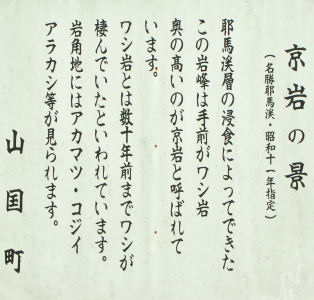 京岩の景
（名勝耶馬渓・昭和十一年指定）
耶馬渓層の浸食によってできた
この岩峰は手前がワシ岩
奥の高いのが京岩と呼ばれて
います。
ワシ岩とは数十年前までワシが
棲んでいたといわれています。
岩角地にはアカマツ・コジイ
アラカシ等が見られます。
山国町